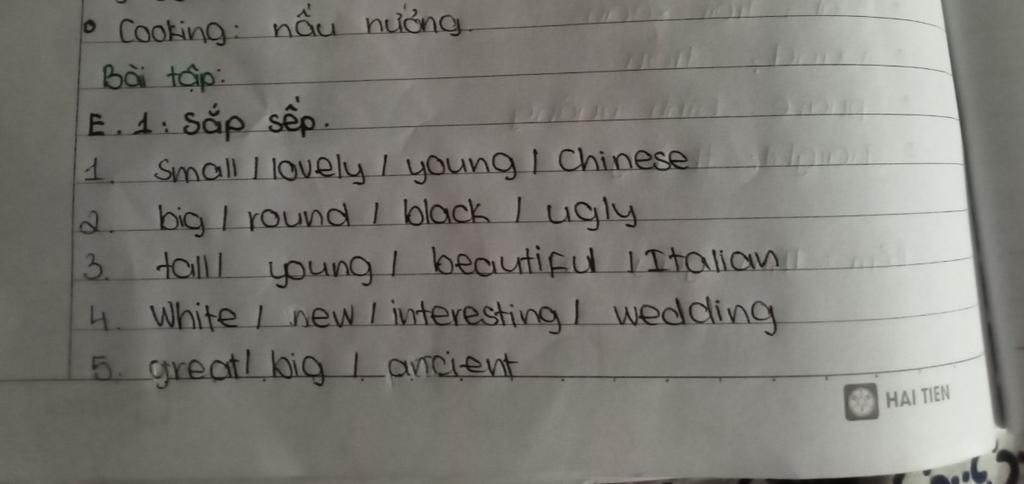 • Cooking: nấu nướng.
Bài tập:
E. 1: Sắp sếp.
1. Small / lovely / young / Chinese
2. big / round / black / ugly
3. tall / young / beautiful / Italian
4. White / new / interesting / wedding
5. great / big / ancient
HAI TIEN